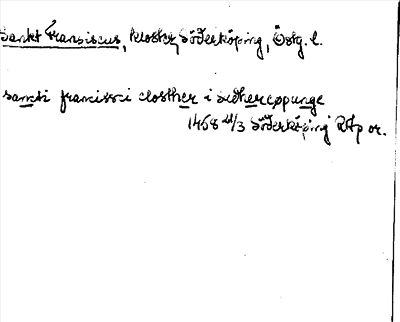 Sankt Franciscus, kloster, Söderköping, Östg. l.
sancti francissci closther i sudhercøpunge
1468 21/3 Söderköping RAp or.